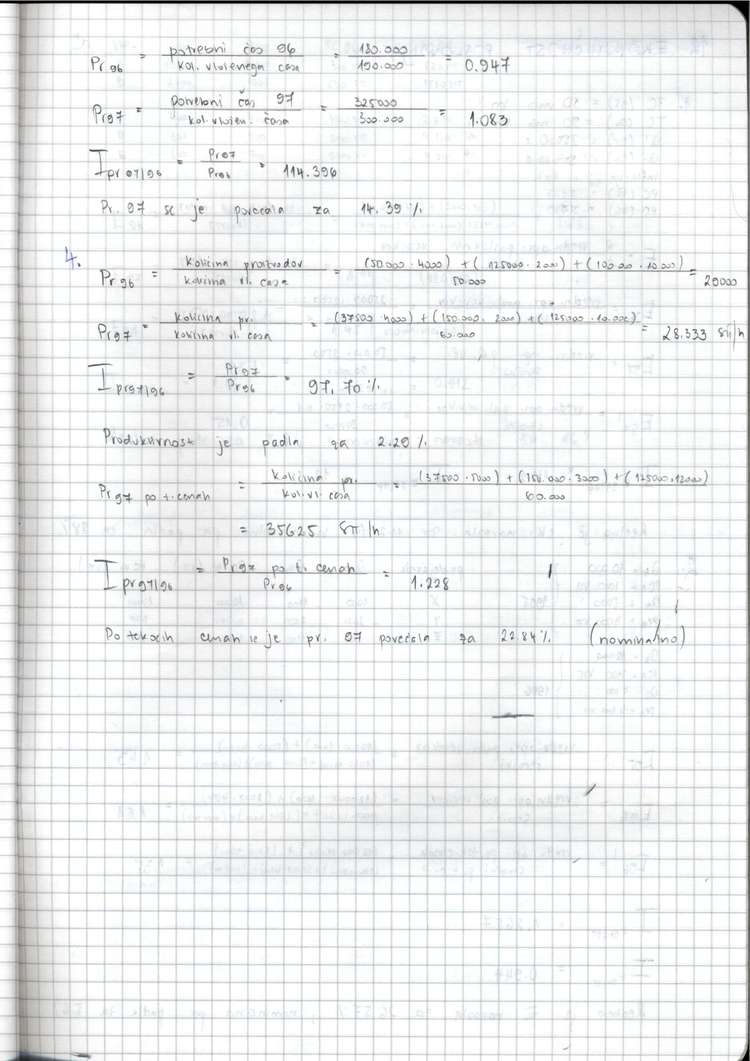 Pr 96 = potrebni čas 96 / kol. vloženega časa = 180.000 / 190.000 = 0.947
Pr97 = potrebni čas 97 / kol. vložen. časa = 325000 / 300.000 = 1.083
I pr 97/96 = Pr97 / Pr96 = 114.396
Pr. 97 se je povečala za 14.39 %
4.
Pr 96 = količina proizvodov / količina vl. časa = (50.000 · 4000) + (125000 · 2000) + (100.000 · 10.000) / 50.000 = 29000
Pr97 = količina pr. / količina vl. časa = (37500 · 4000) + (150.000 · 2000) + (125000 · 10.000) / 60.000 = 28.333 SIT/h
I pr97/96 = Pr97 / Pr96 = 97,70 %
Produktivnost je padla za 2.29 %
Pr 97 po t. cenah = količina pr. / kol. vl. časa = (37500 · 5000) + (150.000 · 3000) + (125000 · 12000) / 60.000
= 35625 SIT/h
I pr97/96 = Pr97 po t. cenah / Pr96 = 1.228
Po tekočih cenah se je pr. 97 povečala za 22.84 % (nominalno)